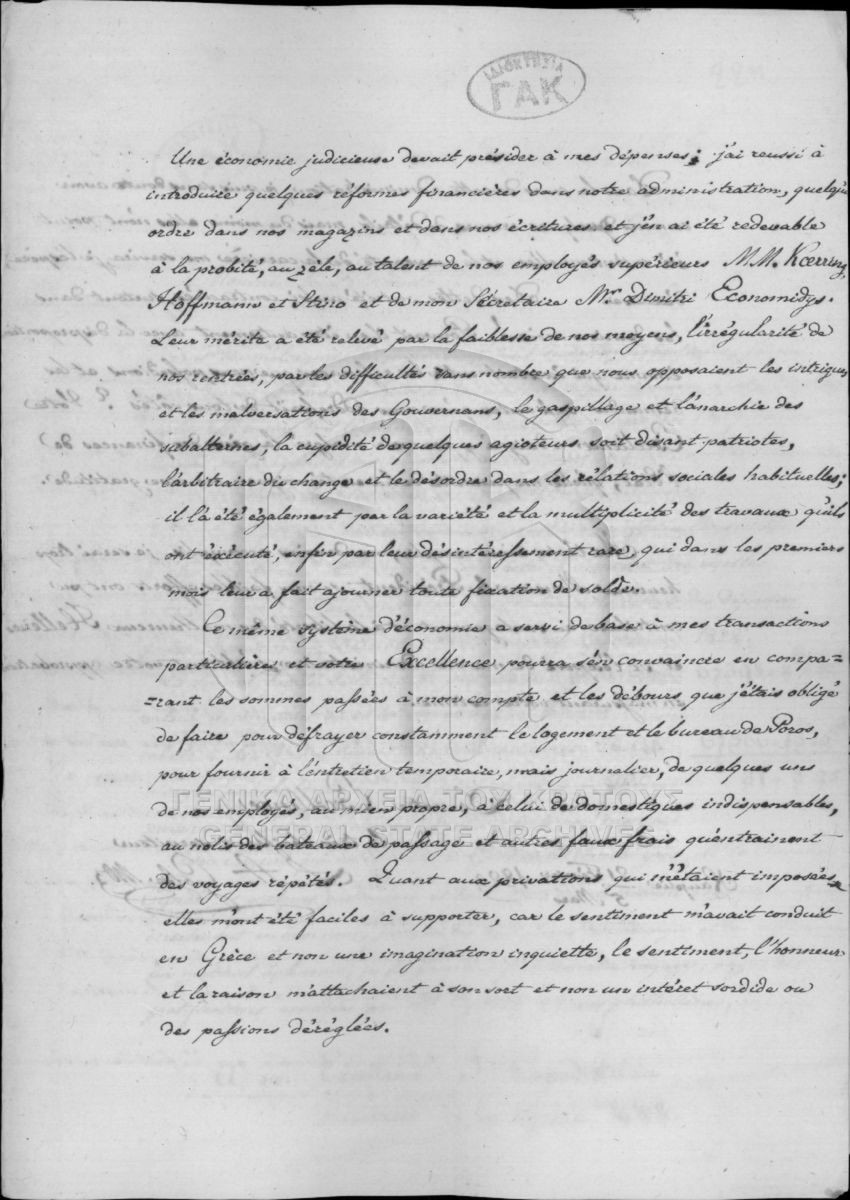 ΙΔΙΟΚΤΗΣΙΑ
ΓΑΚ
Une économie judicieuse devait présider à mes dépenses; j'ai reussi à
introduire quelques réformes financières dans notre administration, quelqu'
ordre dans nos magazins et dans nos écritures et j'en ai été redevable
à la probité, au zèle, au talent de nos employés supérieurs M.M. Kœrring,
Hoffmann et Stino et de mon Sécretaire Mr. Dimitri Economidys.
Leur mérite a été relevé par la faiblesse de nos moyens, l'irrégularité de
nos rentrées, par les difficultés sans nombre que nous opposaient les intrigues
et les malversations des Gouvernans, le gaspillage et l'anarchie des
subalternes, la cupidité de quelques agioteurs soit disant patriotes,
l'arbitraire du change et le désordre dans les rélations sociales habituelles;
il l'a été également par la variété et la multiplicité des travaux qu'ils
ont éxécuté, enfin par leur désintéressement rare, qui dans les premiers
mois leur a fait ajourner toute fixation de solde.
Ce même systême d'économie a servi de base à mes transactions
particulières et votre Excellence pourra s'en convaincre en compa=
=rant les sommes passées à mon compte et les débours que j'étais obligé
de faire pour défrayer constamment le logement et le bureau de Poros,
pour fournir à l'entretien temporaire, mais journalier, de quelques uns
de nos employés, au mien propre, à celui de domestiques indispensables,
au nolis des bateaux de passage et autres faux frais qu'entrainent
des voyages répétés. Quant aux privations qui m'étaient imposées
elles m'ont été faciles à supporter, car le sentiment m'avait conduit
en Grèce et non une imagination inquiette, le sentiment, l'honneur
et la raison m'attachaient à son sort et non un intéret sordide ou
des passions déréglées.
ΓΕΝΙΚΑ ΑΡΧΕΙΑ ΤΟΥ ΚΡΑΤΟΥΣ
GENERAL STATE ARCHIVES